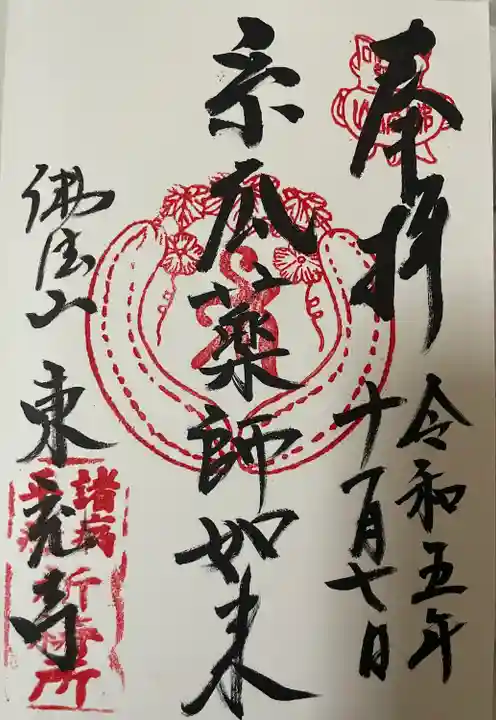 奉拝
令和五年
十一月七日
糸瓜薬師如来
佛法山 東充寺
諸病
祈祷所